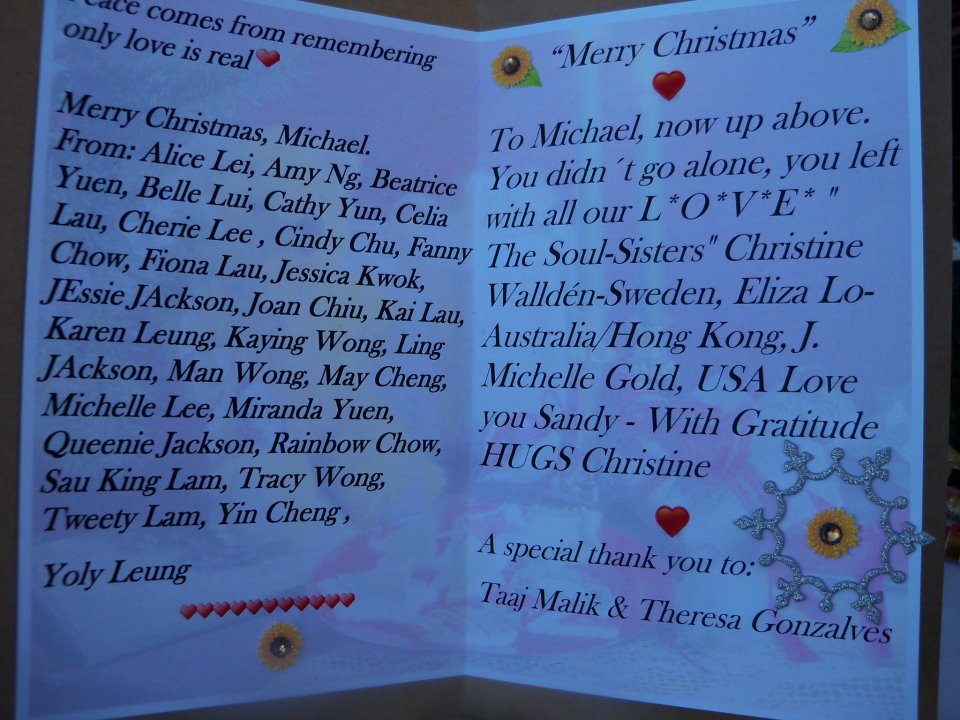 Peace comes from remembering
only love is real
Merry Christmas, Michael.
From: Alice Lei, Amy Ng, Beatrice
Yuen, Belle Lui, Cathy Yun, Celia
Lau, Cherie Lee , Cindy Chu, Fanny
Chow, Fiona Lau, Jessica Kwok,
JEssie JAckson, Joan Chiu, Kai Lau,
Karen Leung, Kaying Wong, Ling
JAckson, Man Wong, May Cheng,
Michelle Lee, Miranda Yuen,
Queenie Jackson, Rainbow Chow,
Sau King Lam, Tracy Wong,
Tweety Lam, Yin Cheng ,
Yoly Leung
“Merry Christmas”
To Michael, now up above.
You didn ´t go alone, you left
with all our L *O *V*E* "
The Soul-Sisters" Christine
Walldén-Sweden, Eliza Lo-
Australia/Hong Kong, J.
Michelle Gold, USA Love
you Sandy - With Gratitude
HUGS Christine
A special thank you to:
Taaj Malik & Theresa Gonzalves